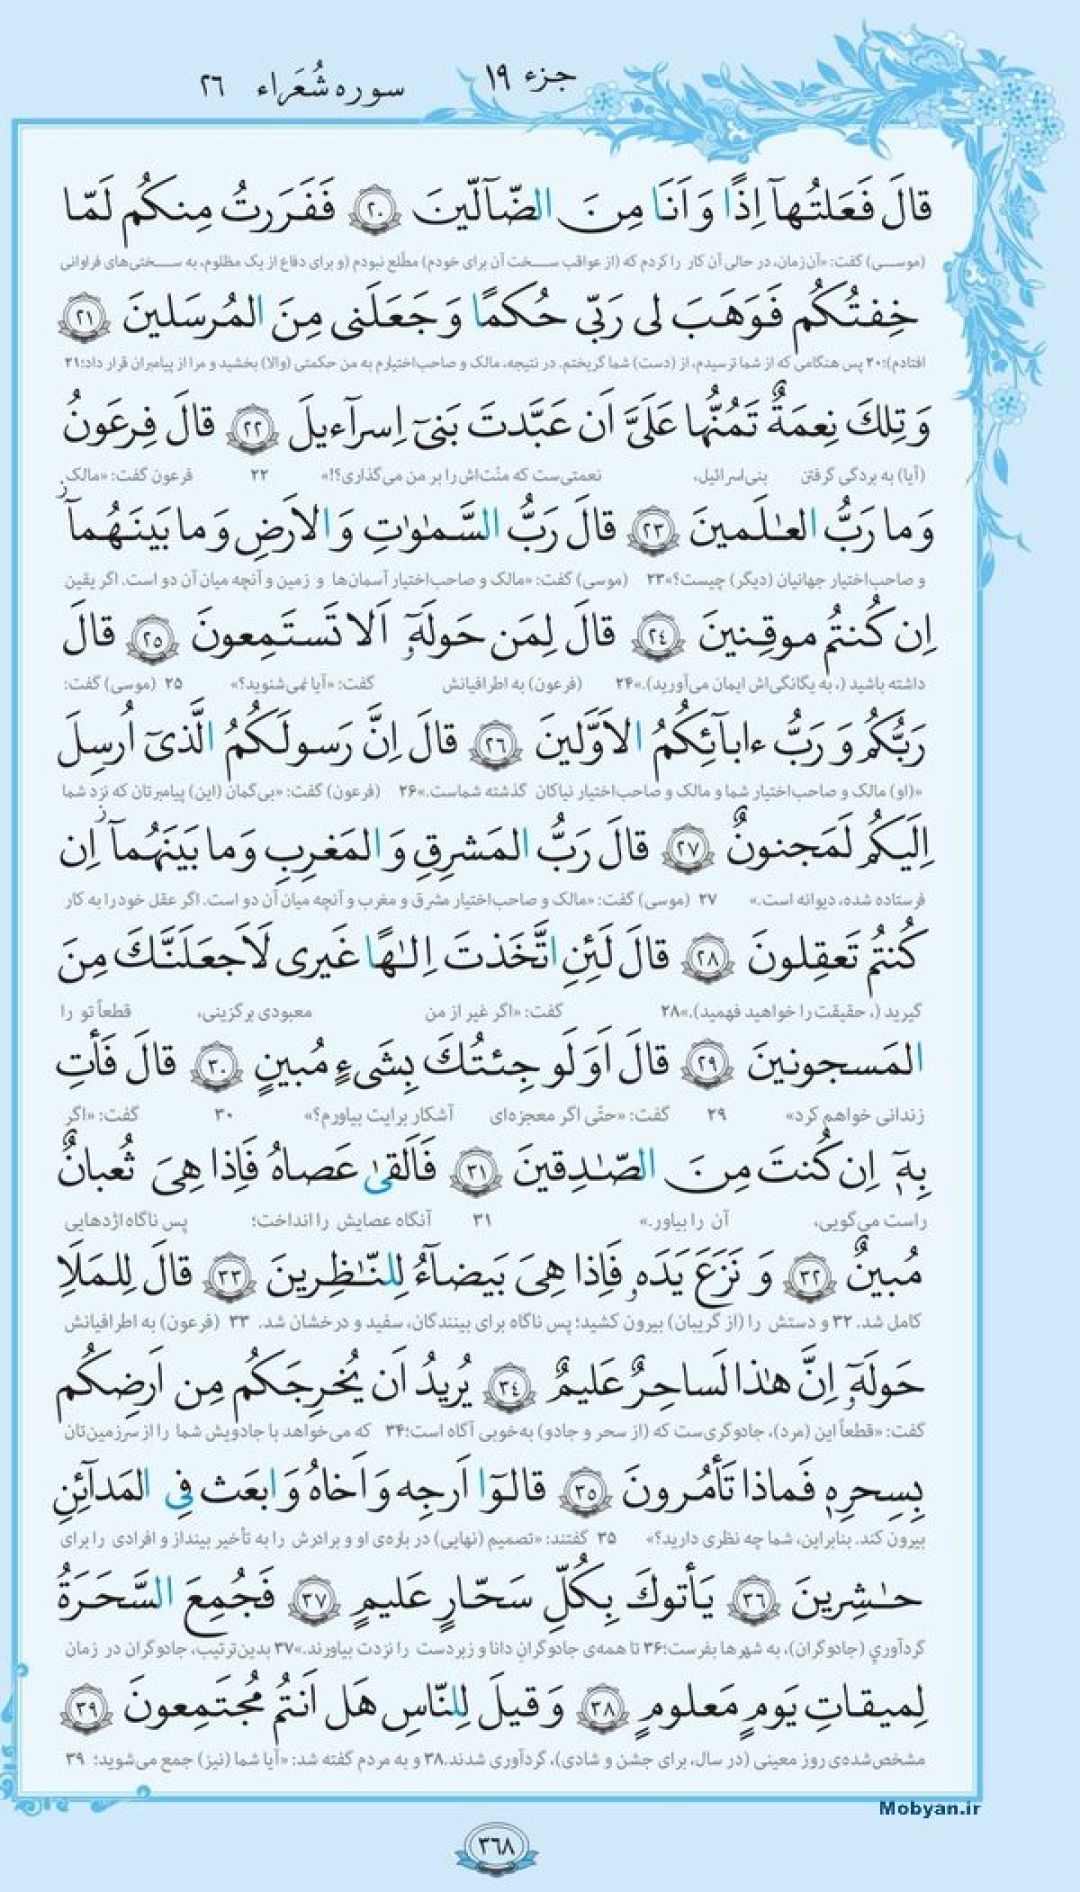 جزء ۱۹
سوره شُعَراء ۲۶
قالَ فَعَلتُهآ اِذًا وَ اَنَا مِنَ الضّآلّينَ ﴿٢٠﴾ فَفَرَرتُ مِنكُم لَمّا
(موسی) گفت: «آن زمان، در حالی آن کار را کردم که (از عواقب سخت آن برای خودم) مطّلع نبودم (و برای دفاع از یک مظلوم، به سختی‌های فراوانی
خِفتُكُم فَوَهَبَ لی رَبّی حُكمًا وَ جَعَلَنی مِنَ المُرسَلینَ ﴿٢١﴾
افتادم)؛۲۰ پس هنگامی که از شما ترسیدم، از (دست) شما گریختم. در نتیجه، مالک و صاحب‌اختیارم به من حکمتی (والا) بخشید و مرا از پیامبران قرار داد؛۲۱
وَ تِلكَ نِعمَةٌ تَمُنُّها عَلَیَّ اَن عَبَّدتَ بَنیۤ اِسرآءیلَ ﴿٢٢﴾ قالَ فِرعَونُ
(آیا) به بردگی گرفتن بنی‌اسرائیل، نعمتی‌ست که منّت‌اش را بر من می‌گذاری؟!» ۲۲ فرعون گفت: «مالک
وَ ما رَبُّ العـٰلَمینَ ﴿٢٣﴾ قالَ رَبُّ السَّمـٰوٰتِ وَ الاَرضِ وَ ما بَینَهُمآ
و صاحب‌اختیار جهانیان (دیگر) چیست؟»۲۳ (موسی) گفت: «مالک و صاحب‌اختیار آسمان‌ها و زمین و آنچه میان آن دو است. اگر یقین
اِن كُنتُم موقِنینَ ﴿٢٤﴾ قالَ لِمَن حَولَهٗۤ اَلا تَستَمِعونَ ﴿٢٥﴾ قالَ
داشته باشید (، به یگانگی‌اش ایمان می‌آورید).»۲۴ (فرعون) به اطرافیانش گفت: «آیا نمی‌شنوید؟» ۲۵ (موسی) گفت:
رَبُّكُم وَ رَبُّ ءابآئِكُمُ الاَوَّلینَ ﴿٢٦﴾ قالَ اِنَّ رَسولَكُمُ الَّذیۤ اُرسِلَ
«(او) مالک و صاحب‌اختیار شما و مالک و صاحب‌اختیار نیاکان گذشته شماست.»۲۶ (فرعون) گفت: «بی‌گمان (این) پیامبرتان که نزد شما
اِلَیكُم لَمَجنونٌ ﴿٢٧﴾ قالَ رَبُّ المَشرِقِ وَ المَغرِبِ وَ ما بَینَهُمآ اِن
فرستاده شده، دیوانه است.» ۲۷ (موسی) گفت: «مالک و صاحب‌اختیار مشرق و مغرب و آنچه میان آن دو است. اگر عقل خود را به کار
كُنتُم تَعقِلونَ ﴿٢٨﴾ قالَ لَئِنِ اتَّخَذتَ اِلـٰهًا غَیری لَاَجعَلَنَّكَ مِنَ
گیرید (، حقیقت را خواهید فهمید).»۲۸ گفت: «اگر غیر از من معبودی برگزینی، قطعاً تو را
المَسجونینَ ﴿٢٩﴾ قالَ اَوَلَو جِئتُكَ بِشَیءٍ مُبینٍ ﴿٣٠﴾ قالَ فَأتِ
زندانی خواهم کرد» ۲۹ گفت: «حتّی اگر معجزه‌ای آشکار برایت بیاورم؟» ۳۰ گفت: «اگر
بِهٖۤ اِن كُنتَ مِنَ الصّـٰدِقینَ ﴿٣١﴾ فَاَلقیٰ عَصاهُ فَاِذا هِیَ ثُعبانٌ
راست می‌گویی، آن را بیاور.» ۳۱ آنگاه عصایش را انداخت؛ پس ناگاه اژدهایی
مُبینٌ ﴿٣٢﴾ وَ نَزَعَ یَدَهٗ فَاِذا هِیَ بَیضآءُ لِلنّـٰظِرینَ ﴿٣٣﴾ قالَ لِلمَلَاِ
کامل شد. ۳۲ و دستش را (از گریبان) بیرون کشید؛ پس ناگاه برای بینندگان، سفید و درخشان شد. ۳۳ (فرعون) به اطرافیانش
حَولَهٗۤ اِنَّ هـٰذا لَساحِرٌ عَلیمٌ ﴿٣٤﴾ یُریدُ اَن یُخرِجَكُم مِن اَرضِكُم
گفت: «قطعاً این (مرد)، جادوگری‌ست که (از سحر و جادو) به‌خوبی آگاه است؛۳۴ که می‌خواهد با جادویش شما را از سرزمین‌تان
بِسِحرِهٖ فَماذا تَأمُرونَ ﴿٣٥﴾ قالوۤا اَرجِه وَ اَخاهُ وَ ابعَث فِی المَدآئِنِ
بیرون کند. بنابراین، شما چه نظری دارید؟» ۳۵ گفتند: «تصمیم (نهایی) در باره‌ی او و برادرش را به تأخیر بینداز و افرادی را برای
حـٰشِرینَ ﴿٣٦﴾ یَأتوكَ بِكُلِّ سَحّارٍ عَلیمٍ ﴿٣٧﴾ فَجُمِعَ السَّحَرَةُ
گردآوری (جادوگران)، به شهرها بفرست؛۳۶ تا همه‌ی جادوگران دانا و زبردست را نزدت بیاورند.»۳۷ بدین‌ترتیب، جادوگران در زمان
لِمیقاتِ یَومٍ مَعلومٍ ﴿٣٨﴾ وَ قیلَ لِلنّاسِ هَل اَنتُم مُجتَمِعونَ ﴿٣٩﴾
مشخص‌شده‌ی روز معینی (در سال، برای جشن و شادی)، گردآوری شدند.۳۸ و به مردم گفته شد: «آیا شما (نیز) جمع می‌شوید؛ ۳۹
Mobyan.ir
۳۶۸